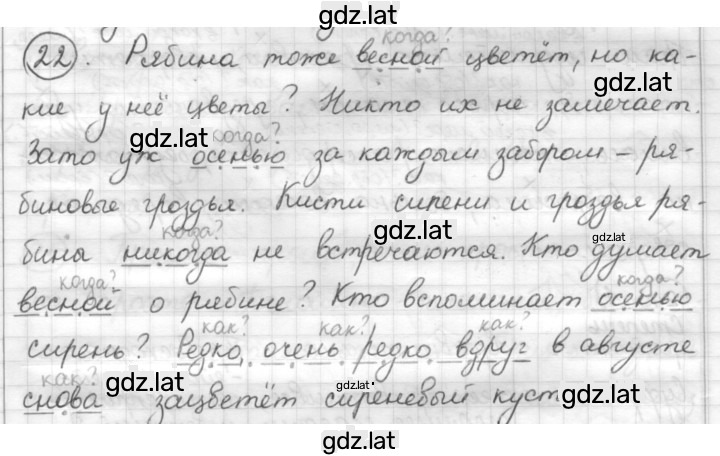 gdz.lat
когда?
22. Рябина тоже весной цветёт, но ка-
gdz.lat
кие у неё цветы? Никто их не замечает.
gdz.lat когда?
Зато уж осенью за каждым забором – ря-
биновые гроздья. Кисти сирени и гроздья ря-
когда? gdz.lat
бины никогда не встречаются. Кто думает
когда? когда?
весной о рябине? Кто вспоминает осенью
как? как? как?
сирень? Редко, очень редко вдруг в августе
как? gdz.lat gdz.lat gdz.lat
снова зацветёт сиреневый куст
gdz.lat